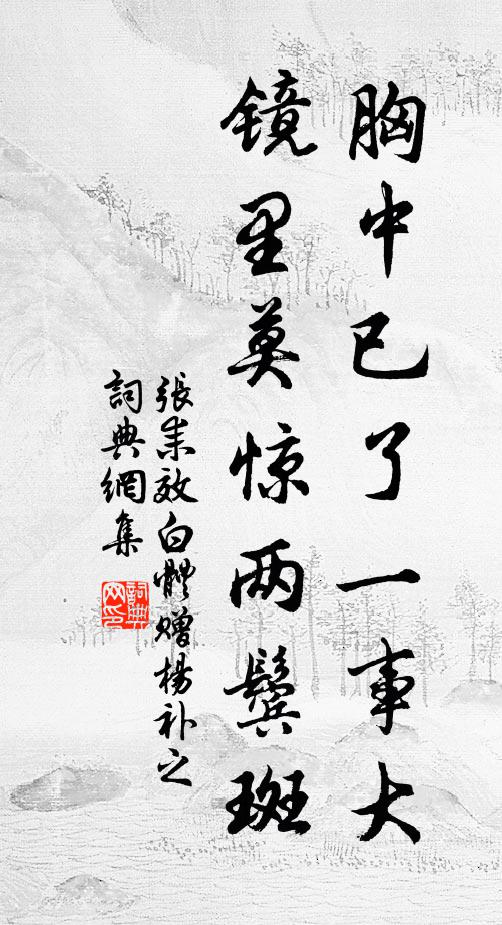 胸中已了一事大
镜里莫惊两鬓斑
張耒效白體贈楊补之
詞典網集
詞典网印